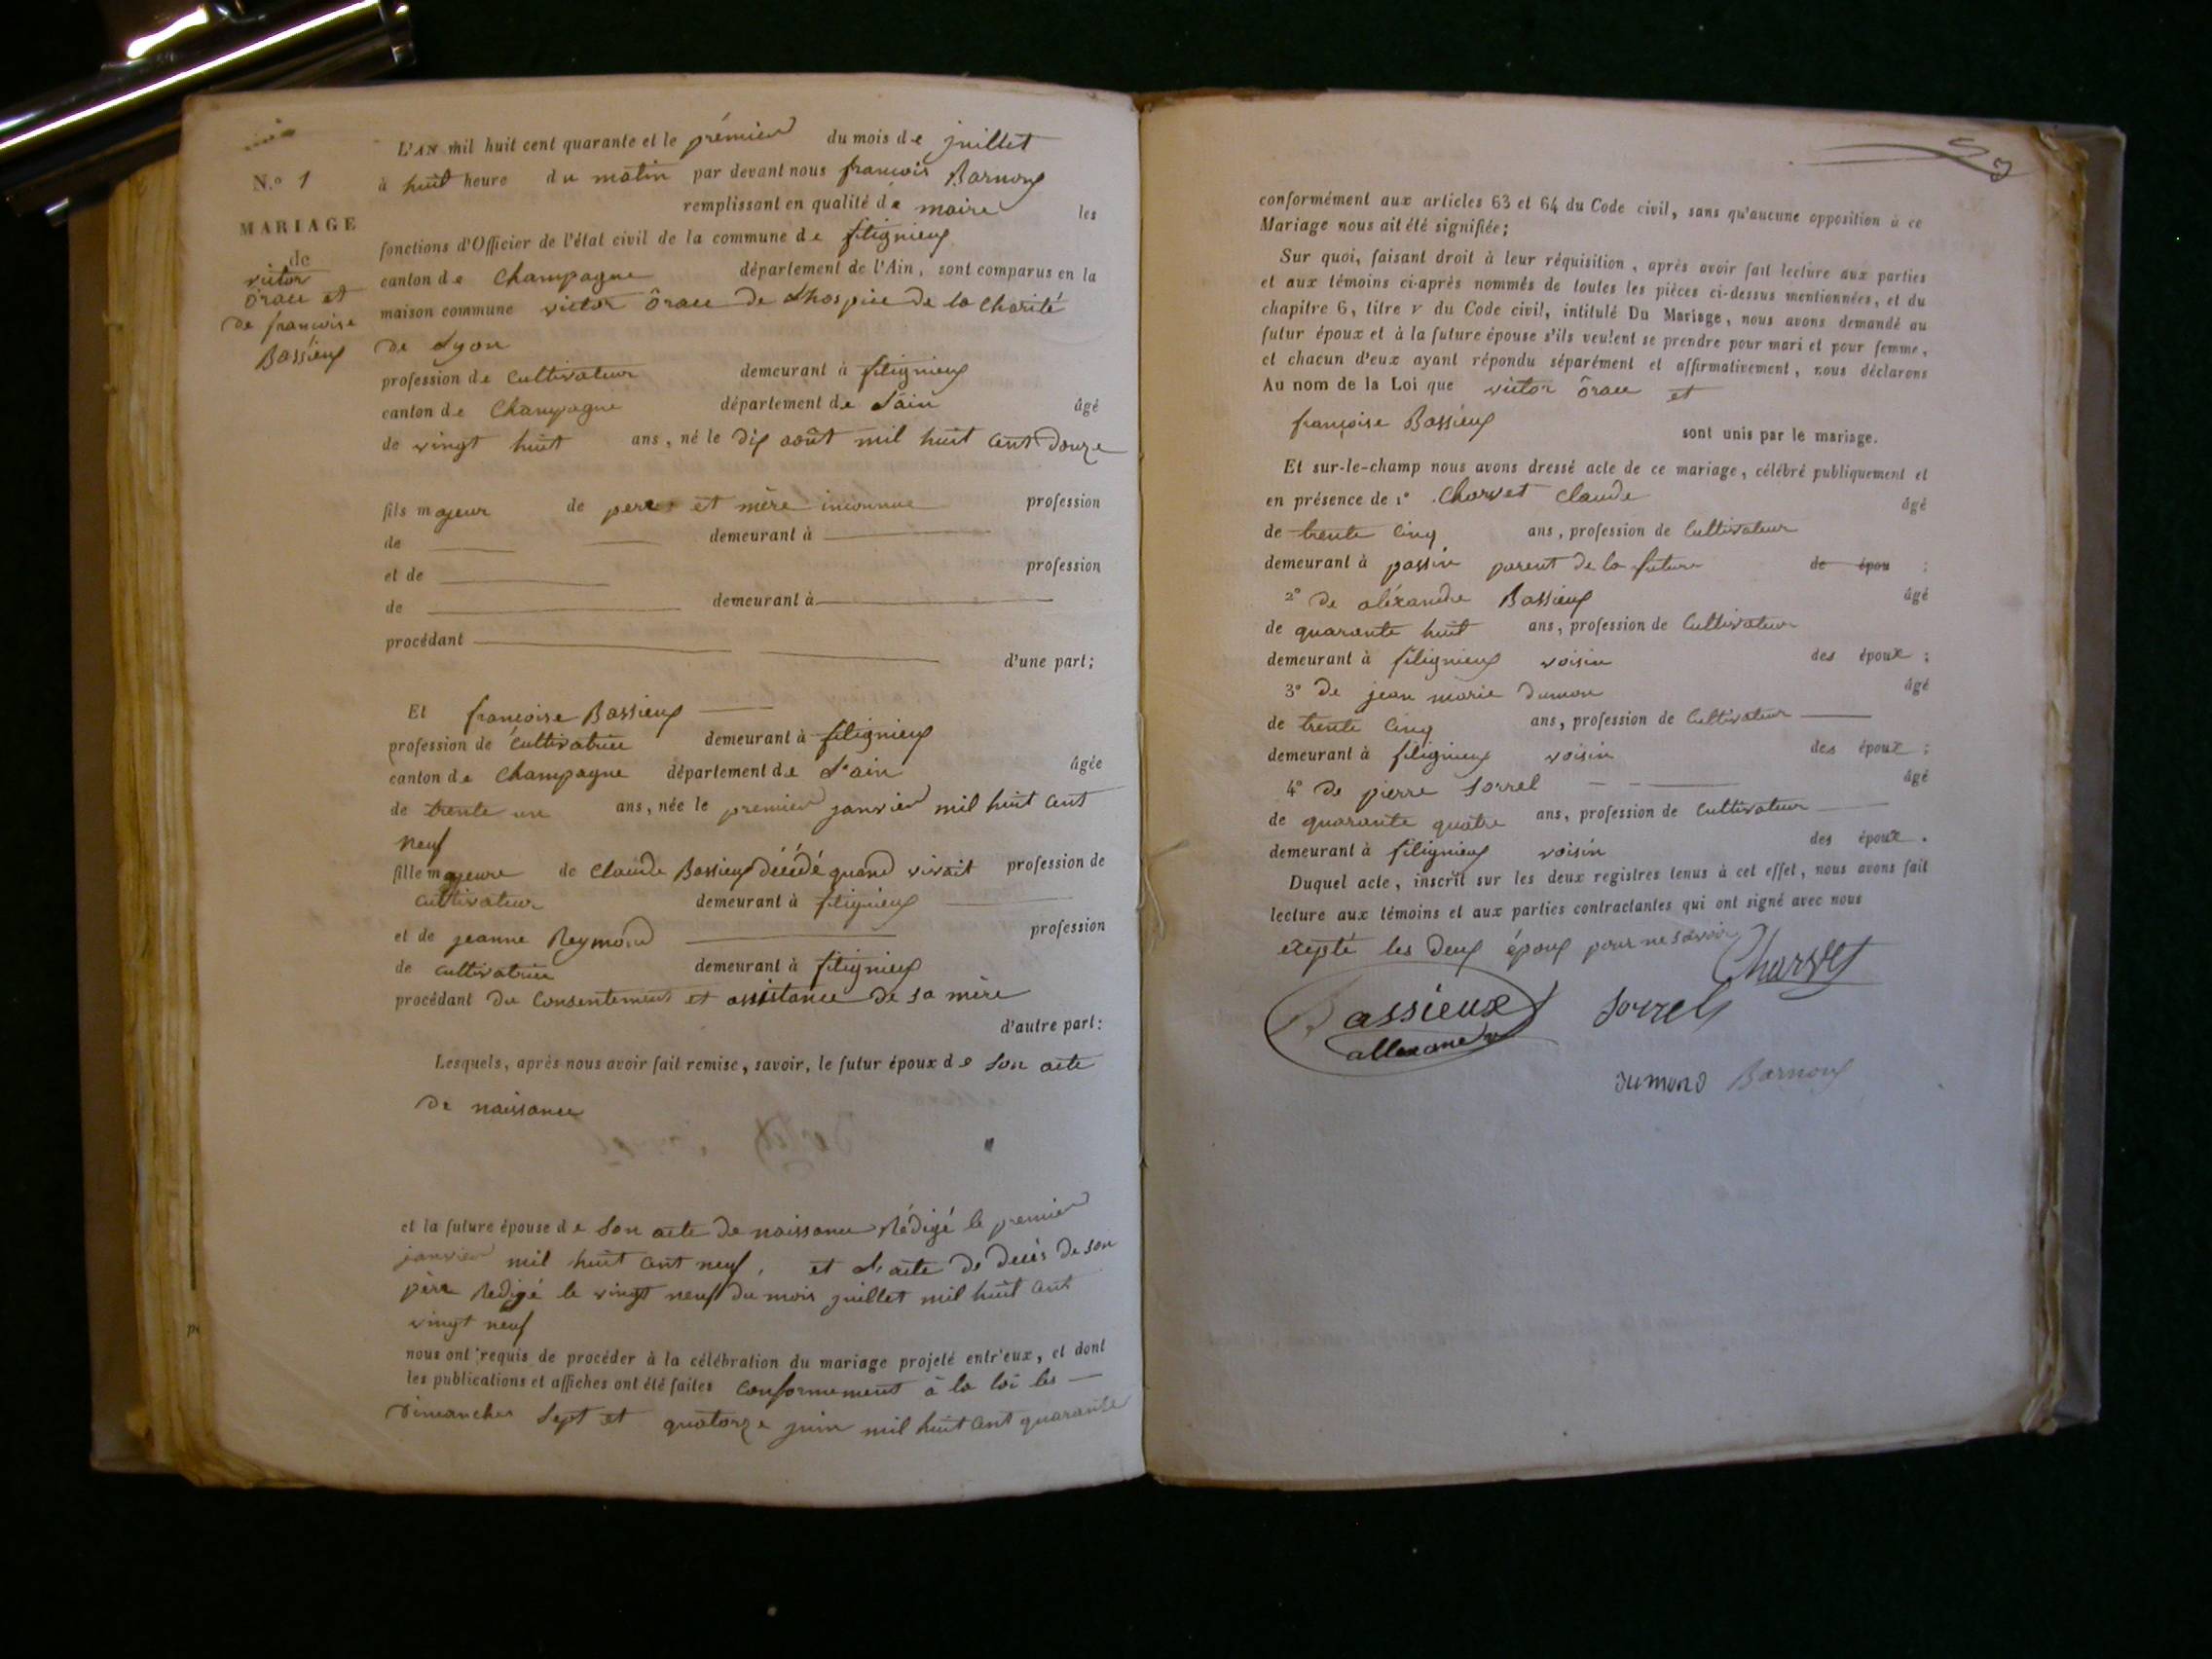 N.o 1
MARIAGE
de
victor
ôrace et
de francoise
Bassieux
L'AN mil huit cent quarante et le prémier du mois de juillet
à huit heure du matin par devant nous francois Barnoux
remplissant en qualité de maire les
fonctions d'Officier de l'état civil de la commune de filignieux
canton de Champagne département de l'Ain, sont comparus en la
maison commune victor ôrace de L'hospice de la charité
de Lyon
profession de Cultivateur demeurant à filignieux
canton de Champagne département de L'ain âgé
de vingt huit ans, né le dix août mil huit cent douze
fils majeur de pere et mère inconnue profession
de demeurant à
et de profession
de demeurant à
procédant
d'une part;
Et françoise Bassieux
profession de cultivatrice demeurant à filignieux
canton de Champagne département de L'ain âgée
de trente un ans, née le premier janvier mil huit cent
neuf
fille majeure de Claude Bassieux décédé quand vivait profession de
cultivateur demeurant à filignieux
et de jeanne Reymond profession
de cultivatrice demeurant à filignieux
procédant du Consentement et assistance de sa mère
d'autre part:
Lesquels, après nous avoir fait remise, savoir, le futur époux de son acte
de naissance
et la future épouse de son acte de naissance Rédigé le premier
janvier mil huit cent neuf, et L'acte de décès de son
père Redigé le vingt neuf du mois juillet mil huit cent
vingt neuf
nous ont requis de procéder à la célébration du mariage projeté entr'eux, et dont
les publications et affiches ont été faites conformement à la loi les
Dimanches sept et quatorze juin mil huit cent quarante
conformément aux articles 63 et 64 du Code civil, sans qu'aucune opposition à ce
Mariage nous ait été signifiée;
Sur quoi, faisant droit à leur réquisition, après avoir fait lecture aux parties
et aux témoins ci-après nommés de toutes les pièces ci-dessus mentionnées, et du
chapitre 6, titre v du Code civil, intitulé Du Mariage, nous avons demandé au
futur époux et à la future épouse s'ils veulent se prendre pour mari et pour femme,
et chacun d'eux ayant répondu séparément et affirmativement, nous déclarons
Au nom de la Loi que victor ôrace et
françoise Bassieux
sont unis par le mariage.
Et sur-le-champ nous avons dressé acte de ce mariage, célébré publiquement et
en présence de 1° Charvet Claude âgé
de trente cinq ans, profession de Cultivateur
demeurant à passin parent de la future de épou ;
2° de aléxandre Bassieux âgé
de quarante huit ans, profession de Cultivateur
demeurant à filignieux voisin des époux ;
3° de jean marie dumon âgé
de trente cinq ans, profession de Cultivateur
demeurant à filignieux voisin des époux ;
4° de pierre sorrel âgé
de quarante quatre ans, profession de Cultivateur
demeurant à filignieux voisin des époux .
Duquel acte, inscrit sur les deux registres tenus à cet effet, nous avons fait
lecture aux témoins et aux parties contractantes qui ont signé avec nous
exepté les deux époux pour ne savoir
Charvet
Bassieux
sorrel
dumond Barnoux